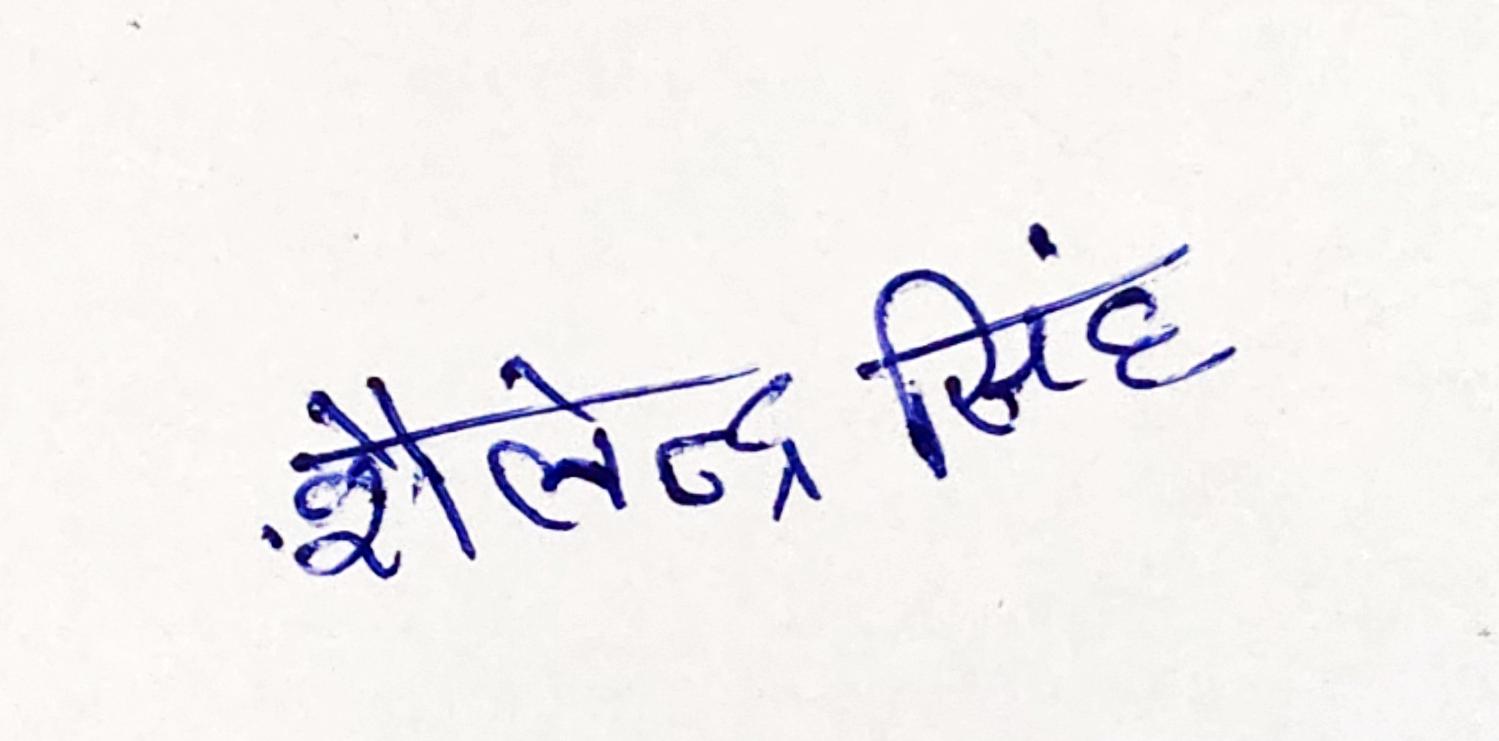 शैलेन्द्र सिंह